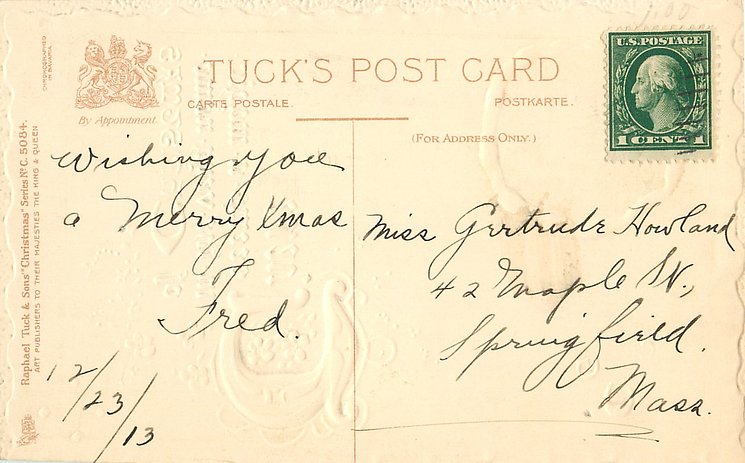 CHROMOGRAPHED
IN BAVARIA.
By Appointment.
TUCK'S POST CARD
CARTE POSTALE.
POSTKARTE.
(FOR ADDRESS ONLY.)
U.S. POSTAGE
1 CENT 1
Raphael Tuck & Sons' "Christmas" Series No C. 5084.
ART PUBLISHERS TO THEIR MAJESTIES THE KING & QUEEN
Wishing you
a Merry Xmas
Fred.
12/23/13
Miss Gertrude Howland
42 Maple St.,
Springfield.
Mass.